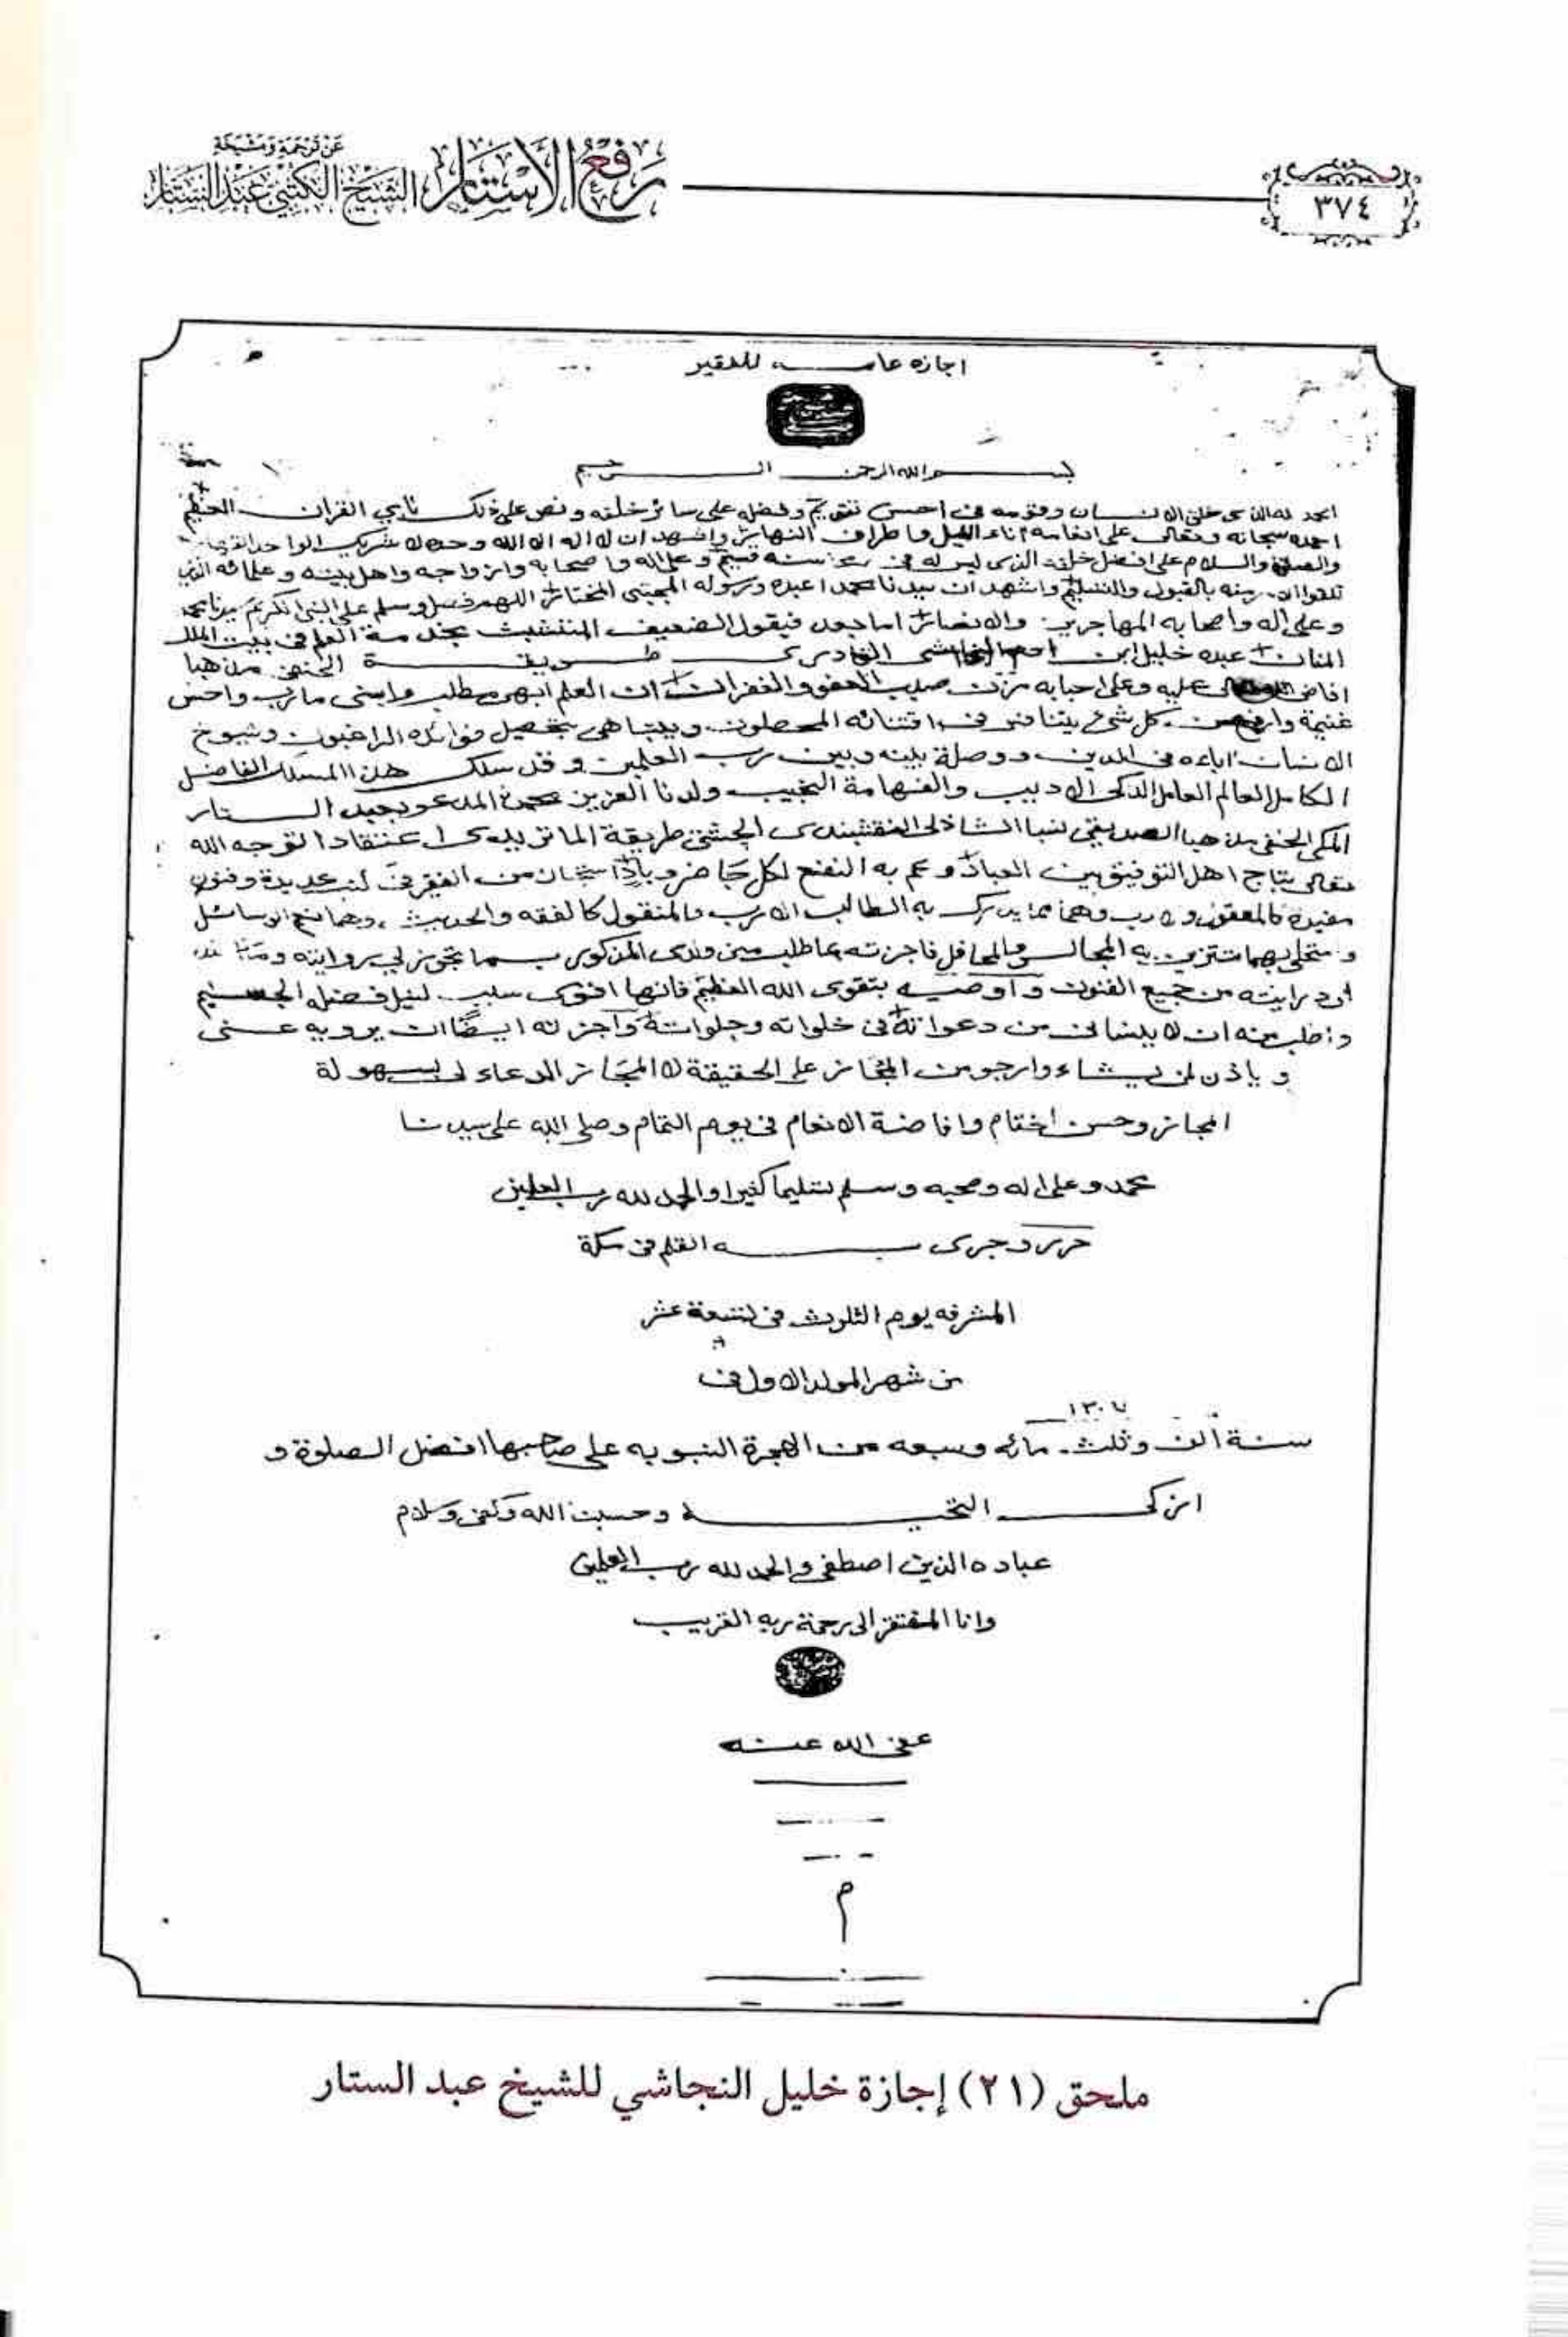 ٣٧٤
رفع الأستار
عن ترجمة ومشيخة
الشيخ الكتبي عبد الستار
اجازه عامـــه للفقير
بســـم الله الرحمن الـــرحيم
الحمد لله الذي خلق الانسان وقومه في احسن تقويم وفضله على سائر خلقه ونص على ذلك في القران العظيم
احمده سبحانه وتعالى على انعامه اناء الليل واطراف النهار واشهد ان لا اله الا الله وحده لا شريك له الواحد القهار
والصلاة والسلام على افضل خلقه الذي ليس له في قسيم وعلى اله واصحابه وازواجه واهل بيته وعلمائه الذين
بالقبول والتسليم واشهد ان سيدنا محمدا عبده ورسوله المجتبى المختار اللهم فصل وسلم على النبي الكريم سيدنا محمد
وعلى اله واصحابه المهاجرين والانصار اما بعد فيقول الضعيف المتشبث بخدمة العلم في بيت الملك
المنان عبده خليل ابن النجاشي القادري طـــريقـــة الحنفي مذهبا
افاض الله تعالى عليه وعلى احبابه مزن صيب العفو والغفران ان العلم ابهى مطلب واسنى مارب واحسن
غنيمة وارفع من كل شيء يتنافس في اقتنائه المحصلون ويتباهى بتحصيل فوائده الراغبون وشيوخ
الانسان اباءه في الدين ووصلة بينه وبين رب العلمين وقد سلك هذا المسلك الفاضل
الكامل العالم العامل الذكي الاديب والفهامة النجيب ولدنا العزيز المدعو بعبد الـــستار
المكي الحنفي مذهبا الصديقي نسبا الشاذلي النقشبندي الچشتي طريقة الماتريدي اعتقادا توجه الله
تعالى بتاج اهل التوفيق بين العباد وعم به النفع لكل حاضر وباد استجاز من الفقير في كتب عديدة وفنون
مفيدة كالمعقول وهما مما يدرك به الطالب الارب والمنقول كالفقه والحديث وهما الوسائل
بهما تتزين به المجالس والمحافل فاجزته بما طلب مني ولدي المذكور بـــما تجوز لي روايته
او درايته من جميع الفنون واوصيه بتقوى الله العظيم فانها اقوى سبب لنيل فضله الجسيم
واطلب منه ان لا ينساني من دعواته في خلواته وجلواته واجزته ايضا ان يرويه عـــني
وياذن لمن يشاء وارجو من المجاز على الحقيقة لا المجاز الدعاء لي بسهولة
المجاز وحسن اختام وافاضة الانعام في يوم التمام وصلى الله على سيدنا
محمد وعلى اله وصحبه وسلم تسليما كثيرا والحمد لله رب العلمين
حرر وجرى بـــه القلم في مكة
المشرفه يوم الثلوث في تسعة عشر
من شهر المولد الاول في
١٣٠٧
سنة الف وثلث مائه وسبعه من الهجرة النبويه على صاحبها افضل الصلوة و
ازكـــى التحيـــه وحسبنا الله وكفى وسلام
عباده الذين اصطفى والحمد لله رب العلمين
وانا المفتقر الى رحمة ربه القريب
عفى الله عنـــه
م
ملحق (٢١) إجازة خليل النجاشي للشيخ عبد الستار